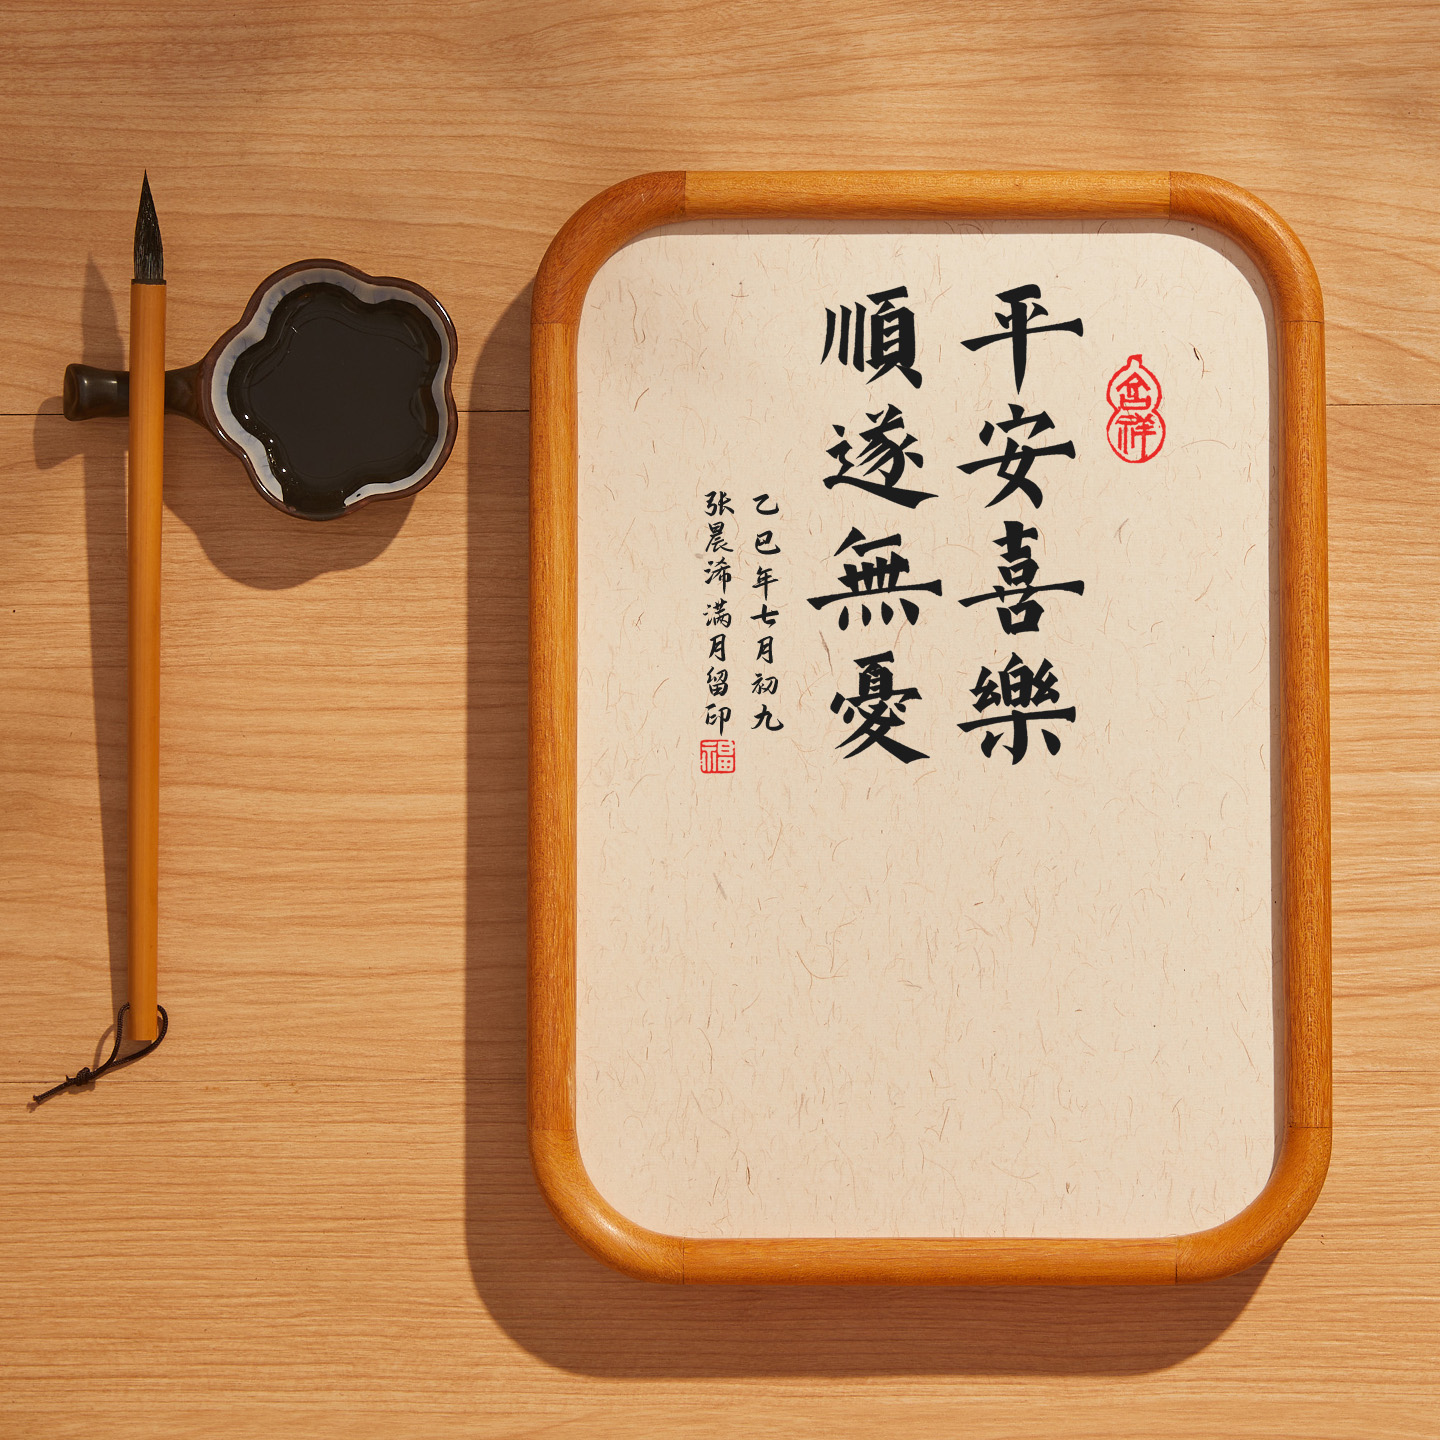 吉祥
平安喜樂
順遂無憂
乙巳年七月初九
张晨浠满月留印
福